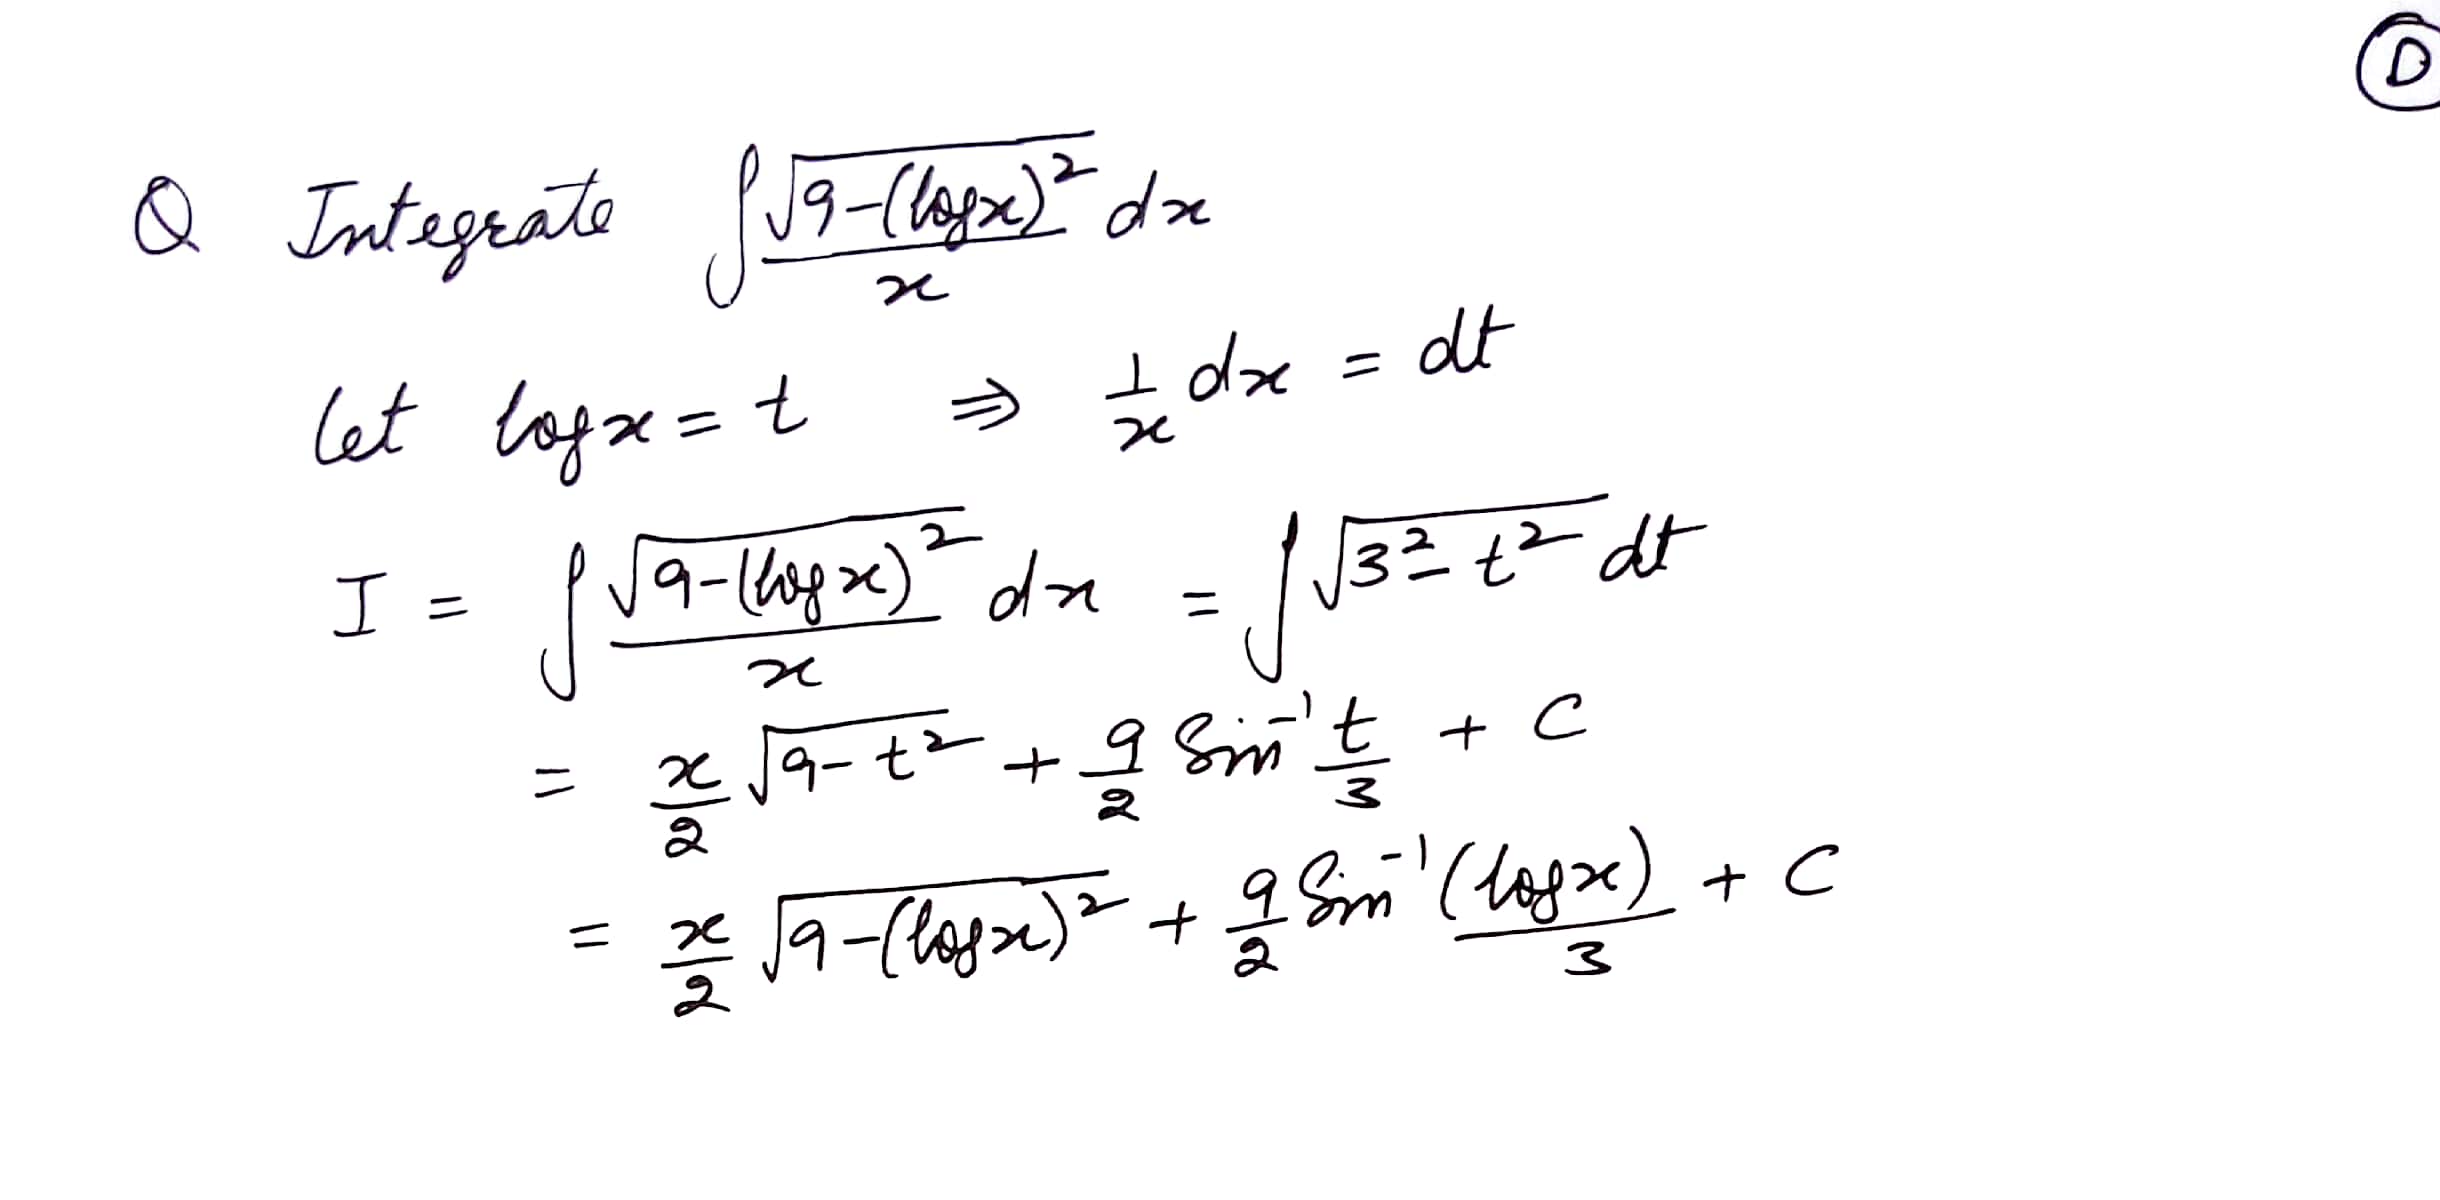 D
Q Integrate ∫ √(9-(logx)²)/x dx
Let logx = t ⇒ 1/x dx = dt
I = ∫ √(9-(logx)²)/x dx = ∫ √(3²-t²) dt
= x/2 √(9-t²) + 9/2 Sin⁻¹ t/3 + C
= x/2 √(9-(logx)²) + 9/2 Sin⁻¹ (logx)/3 + C